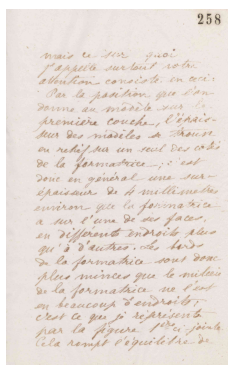 258
mais ce sur quoi
j'appelle surtout votre
attention consiste en ceci:
Par la position que l'on
donne au modèle sur la
première couche, l'épais-
seur des modèles se trouve
en relief sur un seul des côtés
de la formatrice; c'est
donc en général une sur-
épaisseur de 4 millimètres
environ que la formatrice
a sur l'une de ses faces,
en différents endroits plus
qu'à d'autres. Les bords
de la formatrice sont donc
plus minces que le milieu
de la formatrice ne l'est
en beaucoup d'endroits;
c'est ce que je représente
par la figure 1ère ci-jointe
Cela rompt l'équilibre de